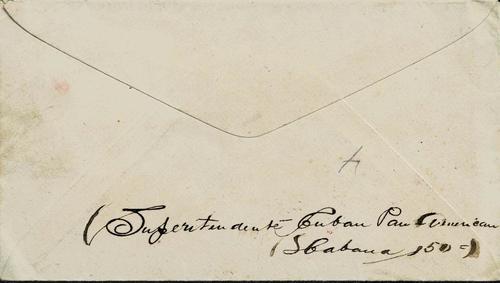 (Superitendente Cuban Pan American
(Habana 150=)